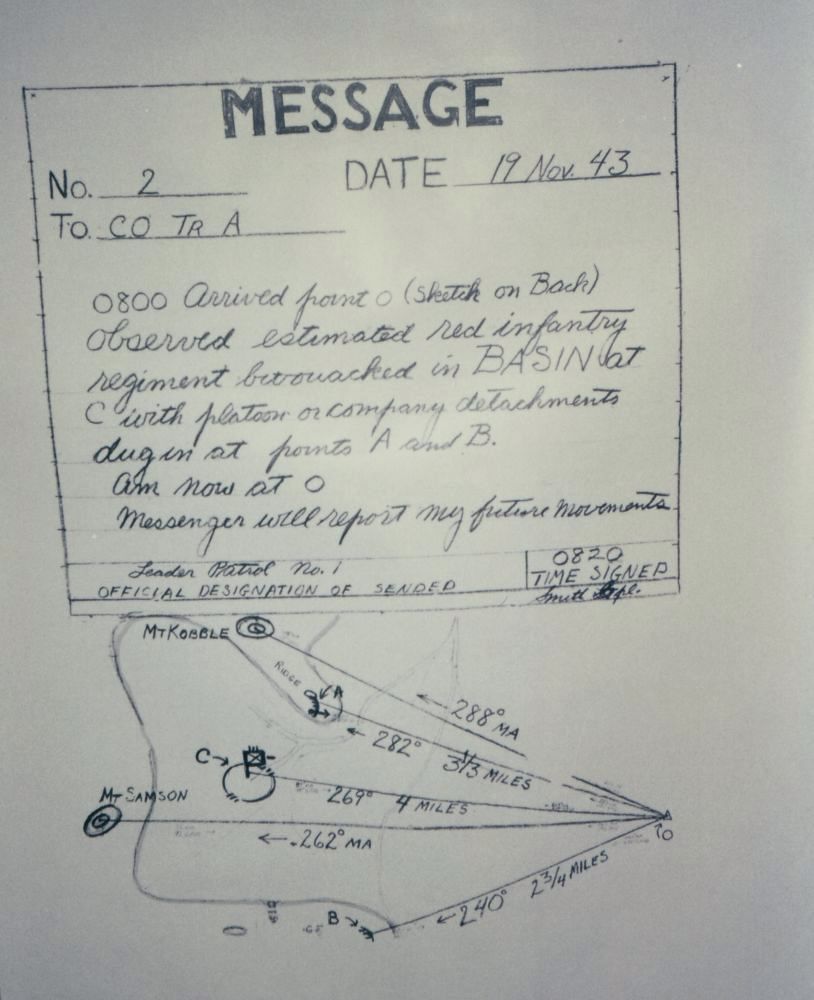 MESSAGE
No. 2 DATE 19 Nov. 43
To. CO TR A
0800 Arrived point O (Sketch on Back)
Observed estimated red infantry
regiment bivouacked in BASIN at
C with platoon or company detachments
dug in at points A and B.
Am now at O
Messenger will report my future movements
Leader Patrol No. 1
OFFICIAL DESIGNATION OF SENDER
0820
TIME SIGNED
Smith Cpl.
MT KOBBLE
RIDGE
A
288° MA
282° 3 1/3 MILES
C
269° 4 MILES
MT SAMSON
262° MA
O
240° 2 3/4 MILES
B